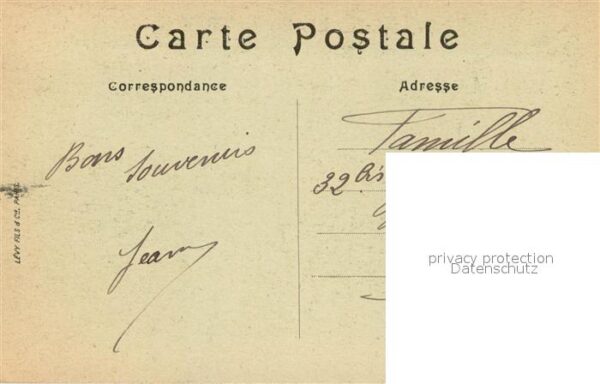 Carte Postale
Correspondance
Adresse
Famille
Bons Souvenirs
32 bis
Jean
LÉVY FILS & Cie, PARIS
privacy protection
Datenschutz